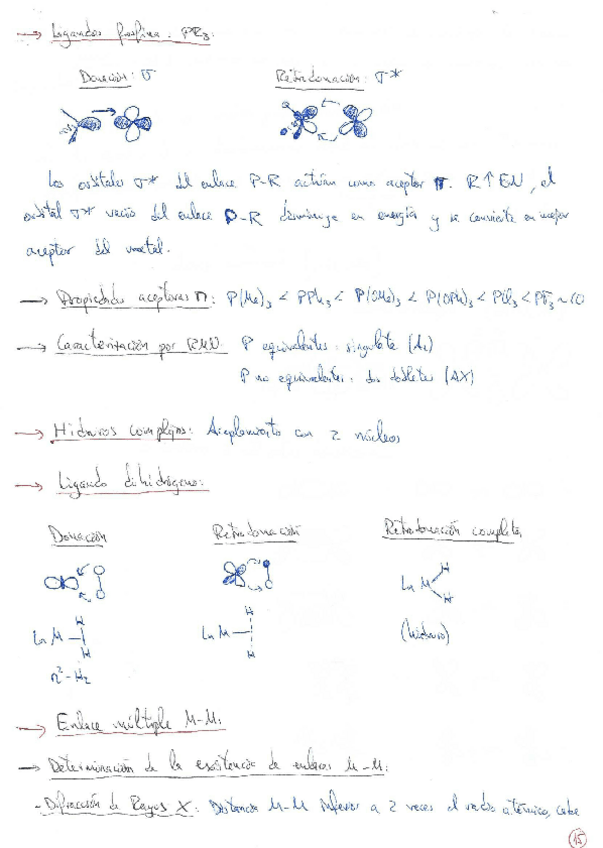 → Ligandos fosfina. PR3:
Donación: σ
Retrodonación: σ*
Los orbitales σ* del enlace P-R actúan como aceptor π. R↑EN, el
orbital σ* vacío del enlace P-R disminuye en energía y se convierte en mejor
aceptor del metal.
→ Propiedades aceptoras π: P(Me)3 < PPh3 < P(OMe)3 < P(OPh)3 < PCl3 < PF3 ~ CO
→ Caracterización por RMN P equivalentes: singulete (A2)
P no equivalentes: dos dobletes (AX)
→ Hidruros complejos: Acoplamiento con 2 núcleos
→ Ligando dihidrógeno:
Donación
Retrodonación
Retrodonación completa
H
LnM
H
η²-H2
H
LnM
H
H
LnM
H
(hidruro)
→ Enlace múltiple M-M:
→ Determinación de la existencia de enlaces M-M:
- Difracción de Rayos X: Distancia M-M inferior a 2 veces el radio atómico, cabe
15